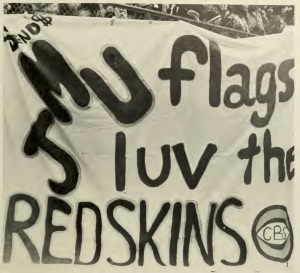 JMU flags
luv the
REDSKINS CBS